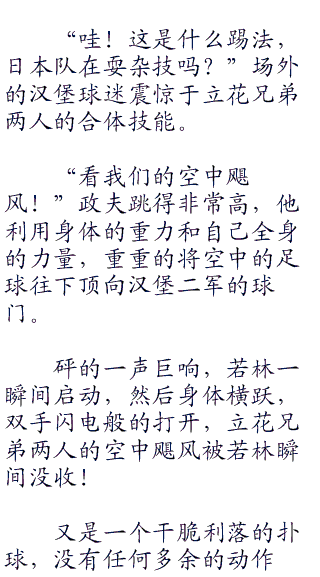 “哇！这是什么踢法，
日本队在耍杂技吗？”场外
的汉堡球迷震惊于立花兄弟
两人的合体技能。
“看我们的空中飓
风！”政夫跳得非常高，他
利用身体的重力和自己全身
的力量，重重的将空中的足
球往下顶向汉堡二军的球
门。
砰的一声巨响，若林一
瞬间启动，然后身体横跃，
双手闪电般的打开，立花兄
弟两人的空中飓风被若林瞬
间没收！
又是一个干脆利落的扑
球，没有任何多余的动作